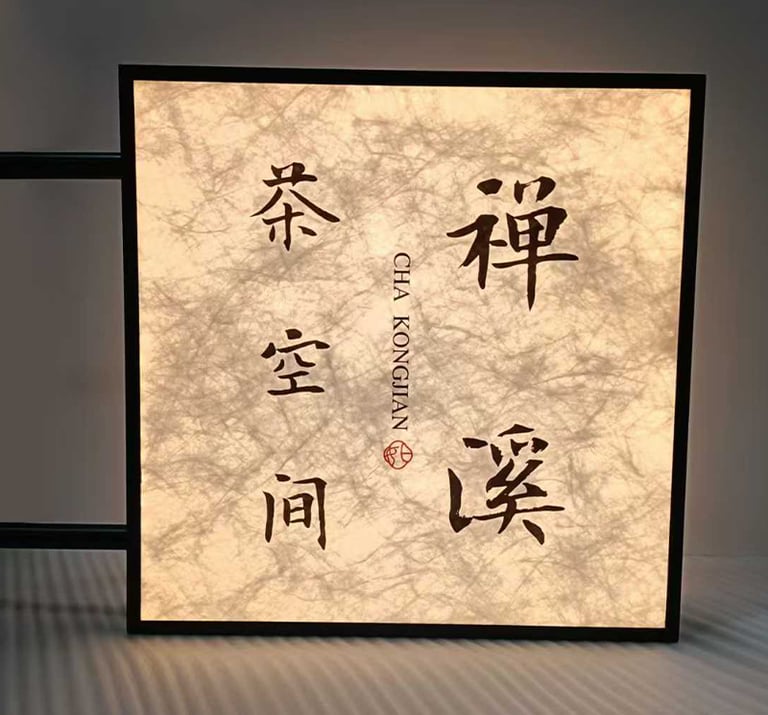 禅溪
CHA KONGJIAN
茶空间